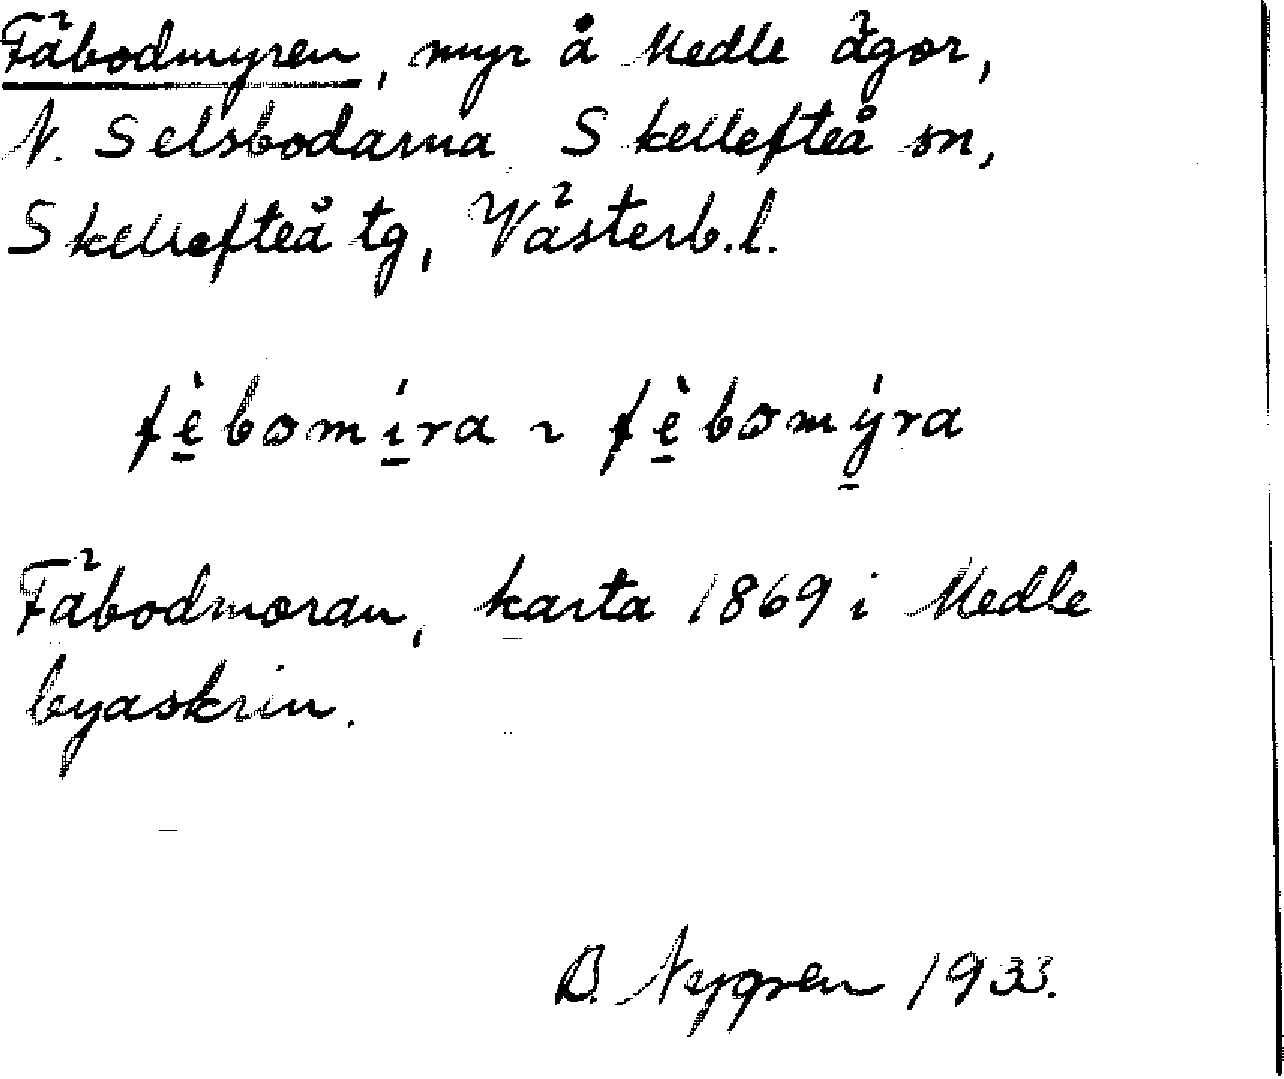 Fäbodmyren, myr å Medle ägor,
N. Selsbodarna Skellefteå sn,
Skellefteå tg, Västerb.l.
fè̱bomí̱ra ~ fè̱bomý̱ra
Fäbodmoran, karta 1869 i Medle
byaskrin.
B. Nygren 1933.